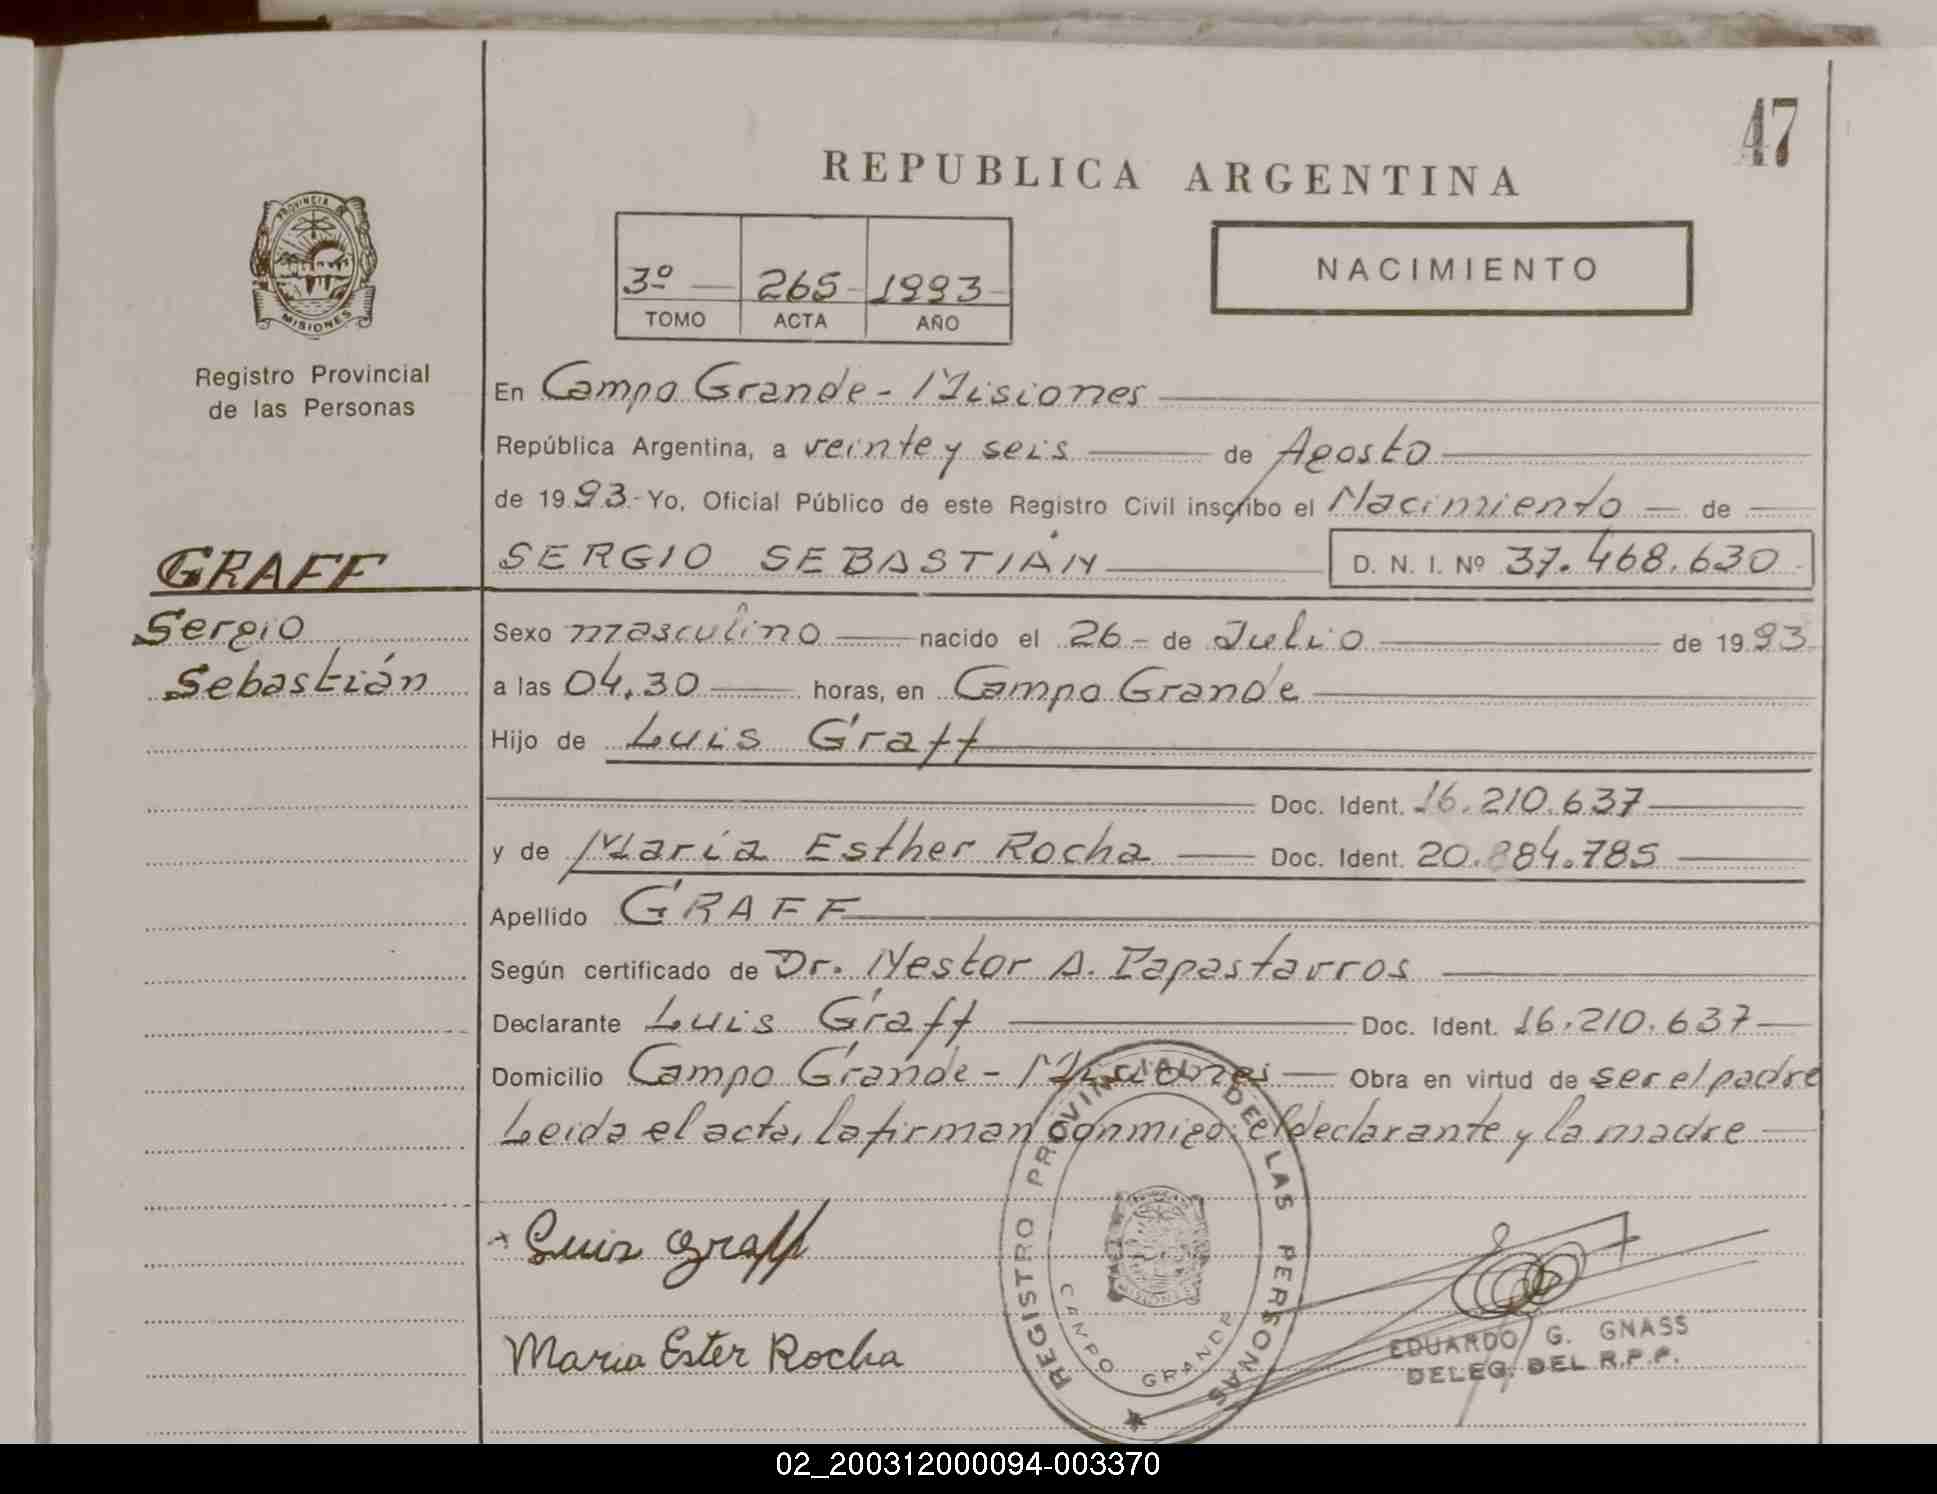 47
REPUBLICA ARGENTINA
PROVINCIA DE
MISIONES
3º 265 1993
TOMO ACTA AÑO
NACIMIENTO
Registro Provincial
de las Personas
En Campo Grande - Misiones
República Argentina, a veinte y seis de Agosto
de 1993 - Yo, Oficial Público de este Registro Civil inscribo el Nacimiento de
GRAFF
SERGIO SEBASTIÁN D. N. I. Nº 37.468.630
Sergio
Sexo masculino nacido el 26 - de Julio de 1993
Sebastián
a las 04,30 horas, en Campo Grande
Hijo de Luis Graff
Doc. Ident. 16.210.637
y de María Esther Rocha Doc. Ident. 20.884.785
Apellido GRAFF
Según certificado de Dr. Nestor A. Papastavros
Declarante Luis Graff Doc. Ident. 16.210.637
Domicilio Campo Grande - Misiones Obra en virtud de ser el padre
Leida el acta, la firman conmigo, el declarante y la madre
Luis Graff
REGISTRO PROVINCIAL DE LAS PERSONAS
CAMPO GRANDE
Maria Ester Rocha
EDUARDO G. GNASS
DELEG. DEL R.P.P.
02_200312000094-003370